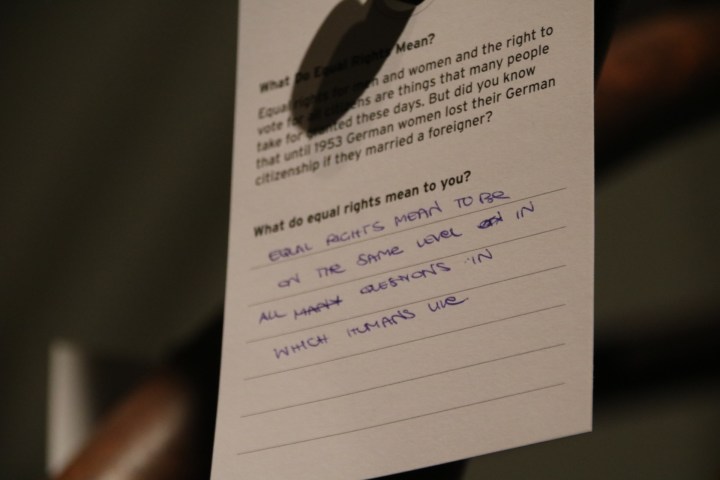 What Do Equal Rights Mean?
Equal rights for men and women and the right to
vote for all citizens are things that many people
take for granted these days. But did you know
that until 1953 German women lost their German
citizenship if they married a foreigner?
What do equal rights mean to you?
EQUAL RIGHTS MEAN TO BE
ON THE SAME LEVEL IN
ALL MANY QUESTIONS IN
WHICH HUMANS LIVE